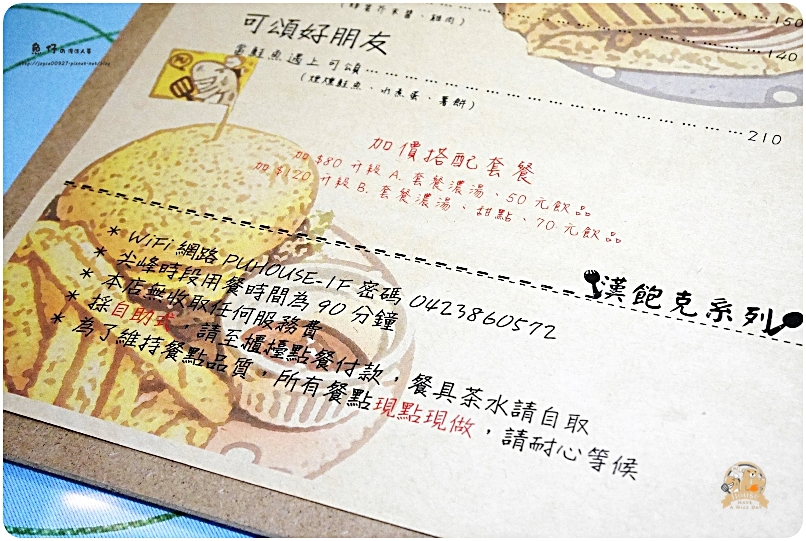 魚仔
http://joyce00927.pixnet.net/blog
150
140
可頌好朋友
當鮭魚遇上可頌 210
(煙燻鮭魚、水煮蛋、薯餅)
加價搭配套餐
加 $80 升級 A. 套餐濃湯、50 元飲品
加 $120 升級 B. 套餐濃湯、甜點、70 元飲品
漢飽克系列
* WiFi 網路 PUHOUSE-1F 密碼 0423860572
* 尖峰時段用餐時間為 90 分鐘
* 本店無收取任何服務費
* 採自助式，請至櫃檯點餐付款，餐具茶水請自取
* 為了維持餐點品質，所有餐點現點現做，請耐心等候